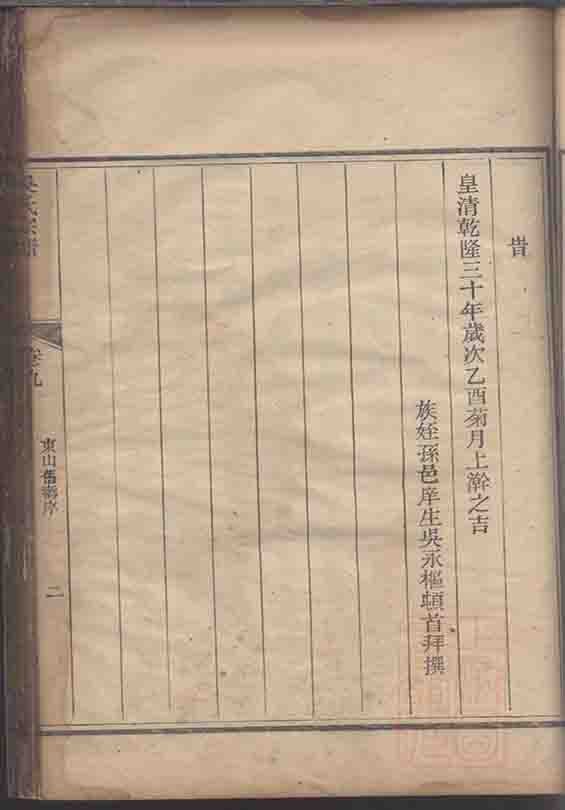 旹
皇清乾隆三十年歲次乙酉菊月上澣之吉
族姪孫邑庠生吳永樞頓首拜撰
吳氏宗譜
卷九
東山舊譜序
二